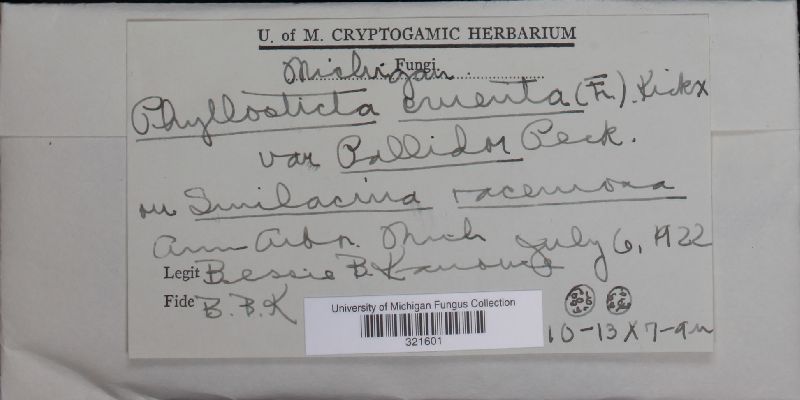 U. of M. CRYPTOGAMIC HERBARIUM
Michigan Fungi.
Phyllosticta cruenta (Fr.) Kickx
var Pallidor Peck.
on Smilacina racemosa
Ann Arbor. Mich July 6, 1922
Legit Bessie B. Kanouse
Fide B. B. K
University of Michigan Fungus Collection
321601
10-13 X 7-9 u